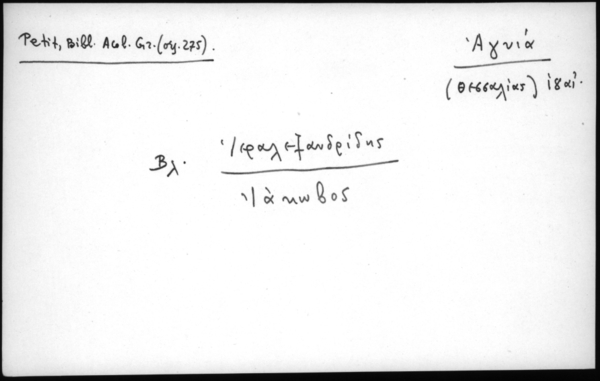 Petit, Bibl. Acol. Gr. (σημ. 275).
Ἁγυιά
(Θεσσαλίας) ἰδαί.
Βλ. Ἱεραλεξανδρίδης
Ἰάκωβος